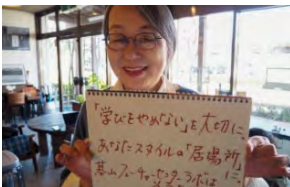 「学びをやめない」を大切に
あなたスタイルの「居場所」に。
葛山フューチャーセンターラボは